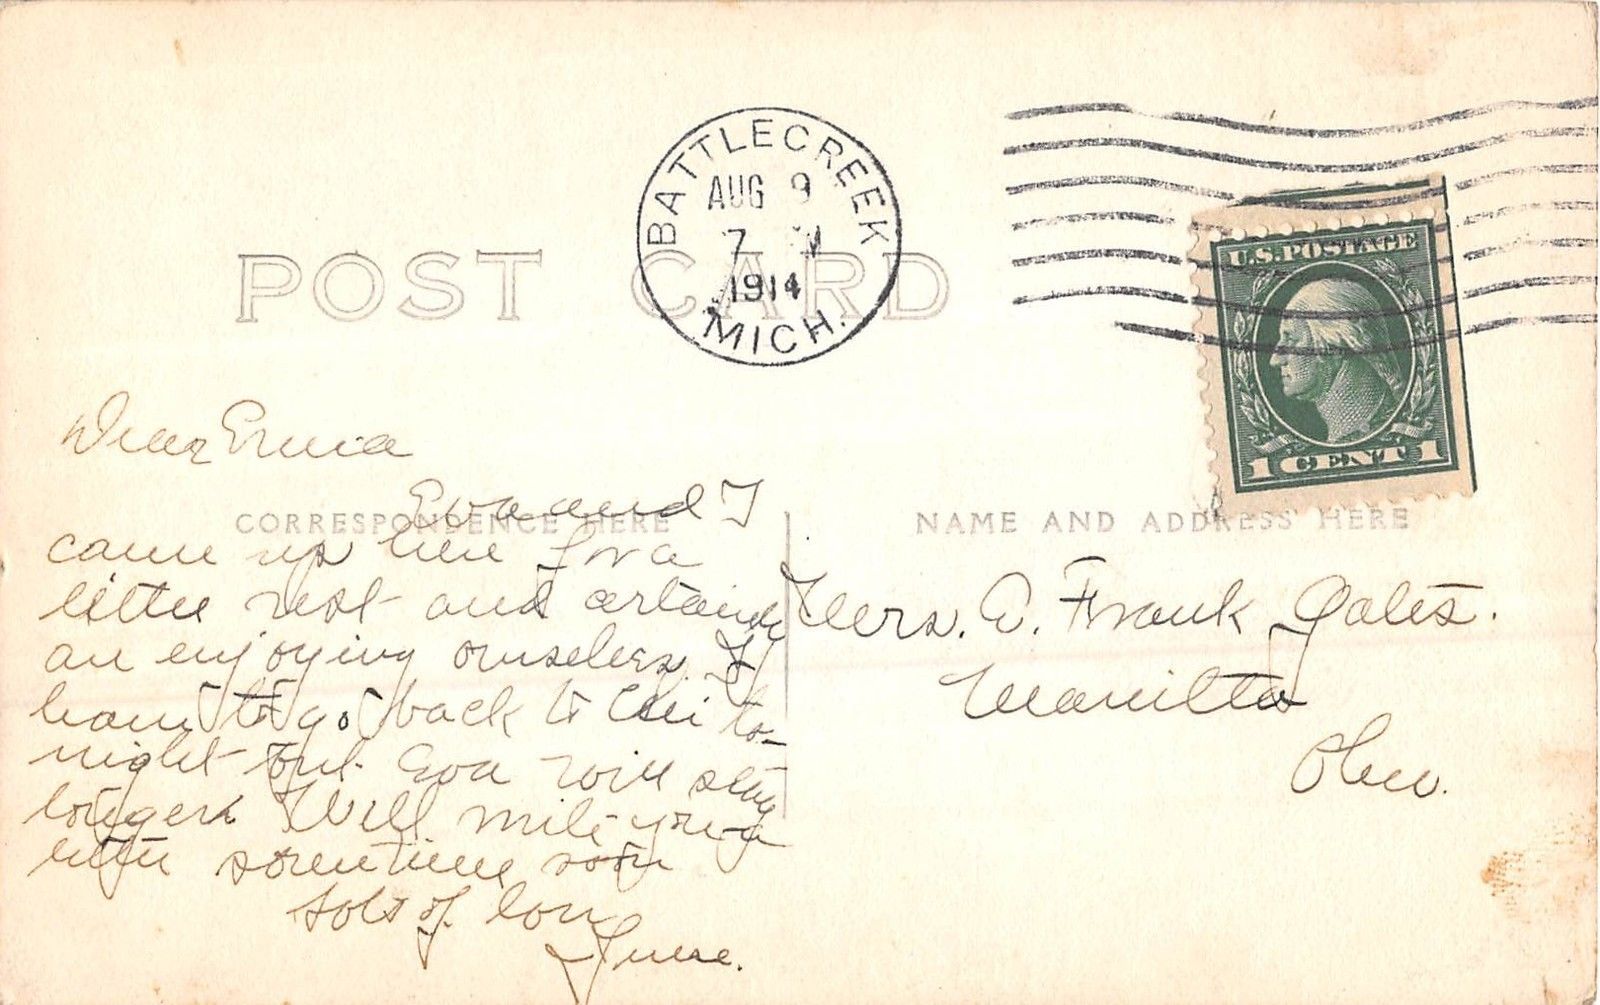 BATTLE CREEK
AUG 9
7 M
1914
MICH.
U.S. POSTAGE
1 CENT 1
POST CARD
CORRESPONDENCE HERE
NAME AND ADDRESS HERE
Dear Erma
Eva and I
came up here for a
little rest and certainly
are enjoying ourselves. I
have to go back to Chi to-
night but Eva will stay
longer. Will write you a
letter sometime soon
Lots of love
June.
Mrs. E. Frank Gates.
Hamilton
Ohio.